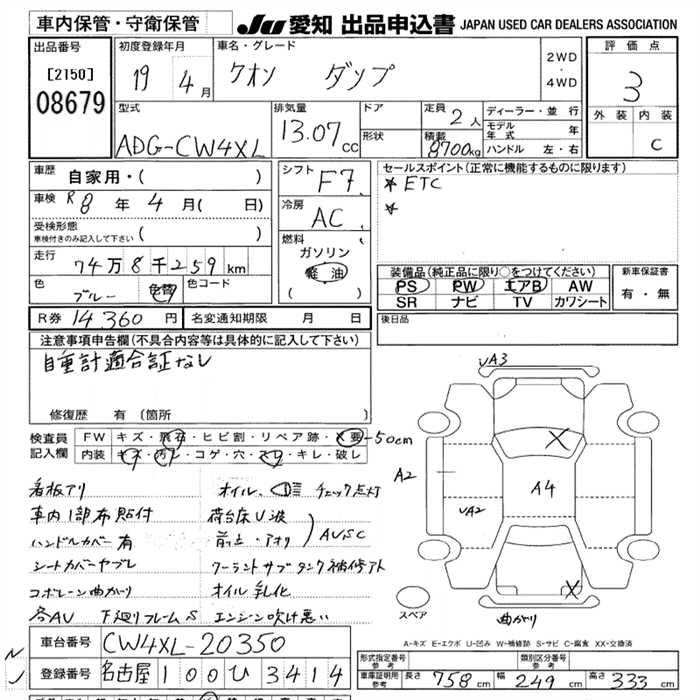 車内保管・守衛保管
JU 愛知 出品申込書 JAPAN USED CAR DEALERS ASSOCIATION
出品番号
[2150]
08679
初度登録年月
19 4月
車名・グレード
クオン ダンプ
2WD
・
4WD
評価点
3
外装 内装
C
型式
ADG-CW4XL
排気量
13.07cc
ドア
形状
定員 2人
積載 8700kg
ディーラー・並行
モデル年式 年
ハンドル 左・右
車歴 自家用・( )
車検 R8年 4月( 日)
受検形態
車検付きのみ記入して下さい ( )
走行
74万8千259km
色
ブルー
色替
色コード
シフト F7
冷房 AC
燃料
ガソリン
軽油
( )
セールスポイント(正常に機能するものに限ります)
* ETC
*
装備品(純正品に限り○をつけてください)
PS PW エアB AW
SR ナビ TV カワシート
新車保証書
有・無
R券 14360円
名変通知期限 月 日
後日品
注意事項申告欄(不具合内容等は具体的に記入して下さい)
自重計適合証なし
修復歴 有 [箇所
検査員記入欄
FW キズ・飛石・ヒビ割・リペア跡・X要 -50cm
内装 キズ・汚レ・コゲ・穴・スレ・キレ・破レ
看板アリ
車内1部布貼付
ハンドルカバー有
シートカバーヤブレ
コボレーン曲がり
各AV 下廻りフレームS
オイル、 チェック点灯
荷台床U波
前立・アオリ AUSC
クーラントサブタンク補修アト
オイル乳化
エンジン吹け悪い
UA3
A2
UA2
A4
X
X
スペア
曲がり
A-キズ E-エクボ U-凹み W-補修跡 S-サビ C-腐食 XX-交換済
車台番号 CW4XL-20350
登録番号 名古屋 100 ひ 3414
形式指定番号
参考
類別区分番号
参考
車庫証明用
参考
長さ 758cm 幅 249cm 高さ 333cm